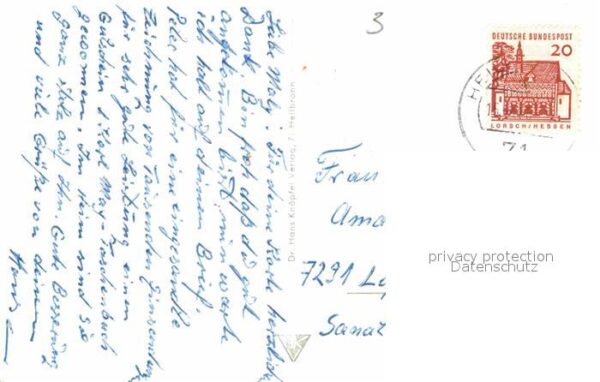 Liebe Maly! Für deine Karte herzlich
Dank. Bin froh daß du gut
angekommen bist, nun warte
ich halt auf deinen Brief.
Peter hat für eine eingesandte
Zeichnung von Tausenden Einsendungen
für sehr gute Leistung einen
Gutschein 1 Karl May-Taschenbuch
gewonnen. Im Heim sind sie
ganz stolz auf ihn. Gute Besserung
und viele Grüße von deinem
Dr. Hans Knöpfel Verlag, Heilbronn
3
DEUTSCHE BUNDESPOST
20
LORSCH/HESSEN
HEI
71
Frau
Ama
7291
Sana
privacy protection
Datenschutz